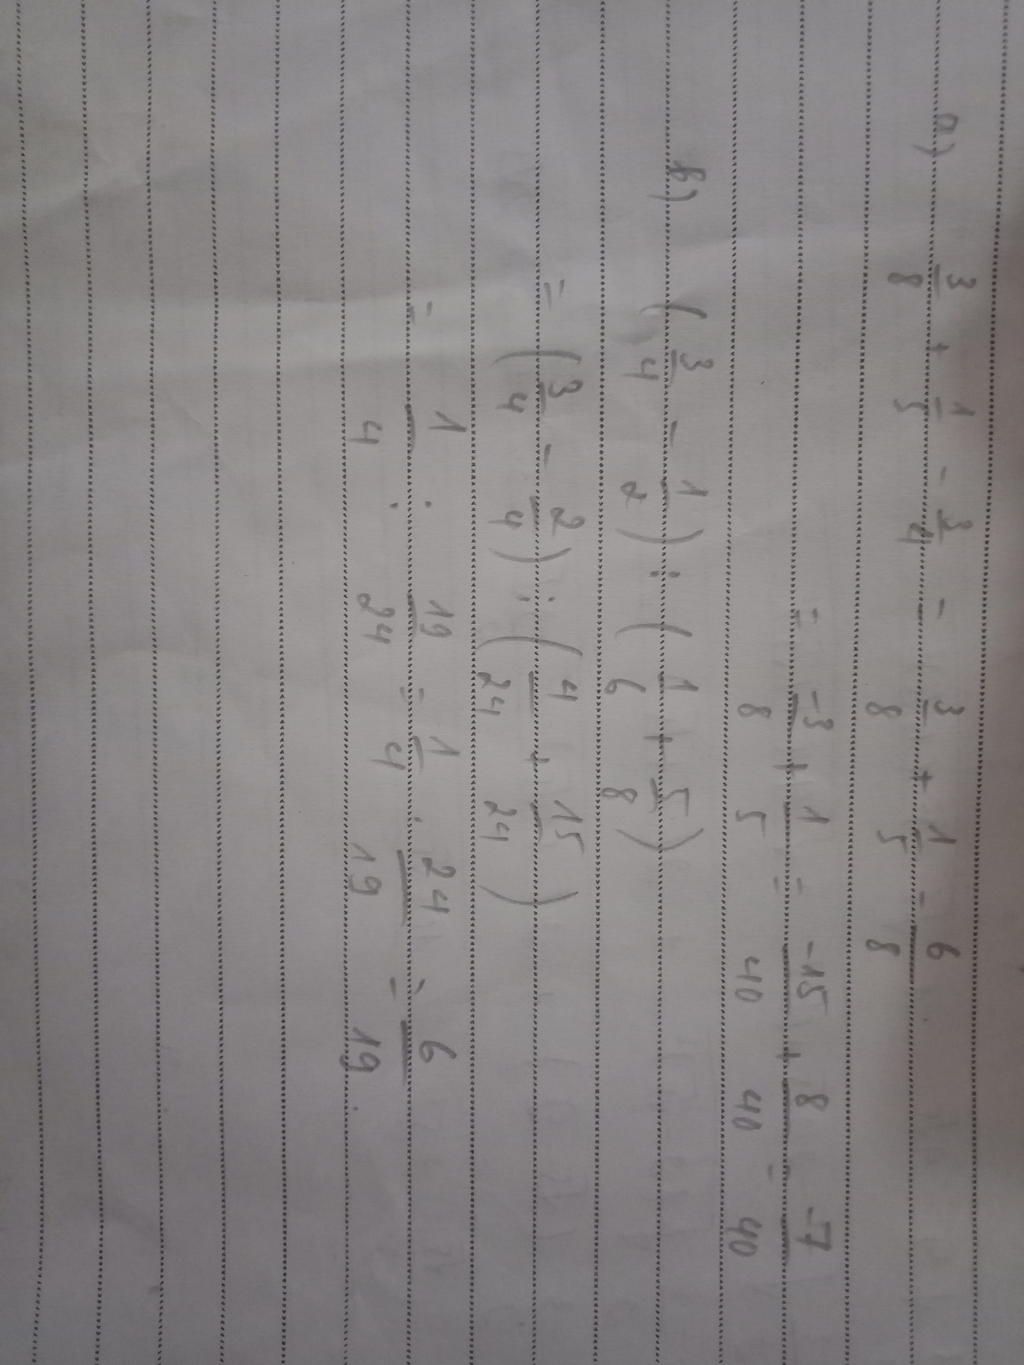 a) 3/8 + 1/5 - 3/4 = 3/8 + 1/5 - 6/8
= -3/8 + 1/5 = -15/40 + 8/40 = -7/40
b) (3/4 - 1/2) : (1/6 + 5/8)
= (3/4 - 2/4) : (4/24 + 15/24)
= 1/4 : 19/24 = 1/4 . 24/19 = 6/19.